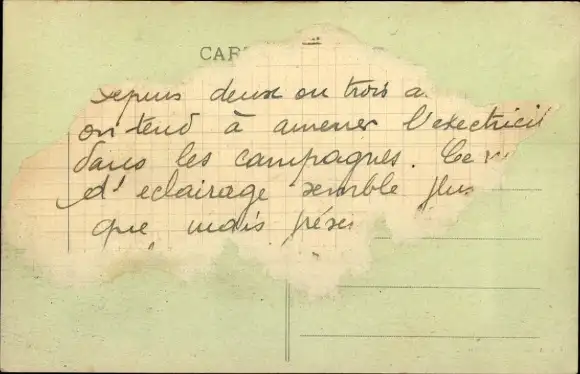 CAR
depuis deux ou trois a
on tend à amener l'exectricit
dans les campagnes. Ce
d'eclairage semble plus
que, mais